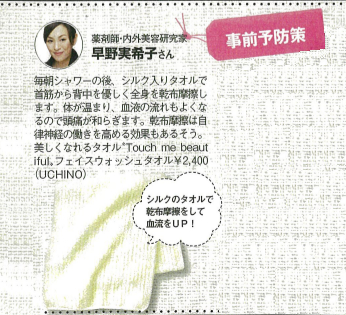 事前予防策
薬剤師・内外美容研究家
早野実希子さん
毎朝シャワーの後、シルク入りタオルで
首筋から背中を優しく全身を乾布摩擦し
ます。体が温まり、血液の流れもよくな
るので頭痛が和らぎます。乾布摩擦は自
律神経の働きを高める効果もあるそう。
美しくなれるタオル"Touch me beaut
iful„フェイスウォッシュタオル¥2,400
(UCHINO)
シルクのタオルで
乾布摩擦をして
血流をUP!